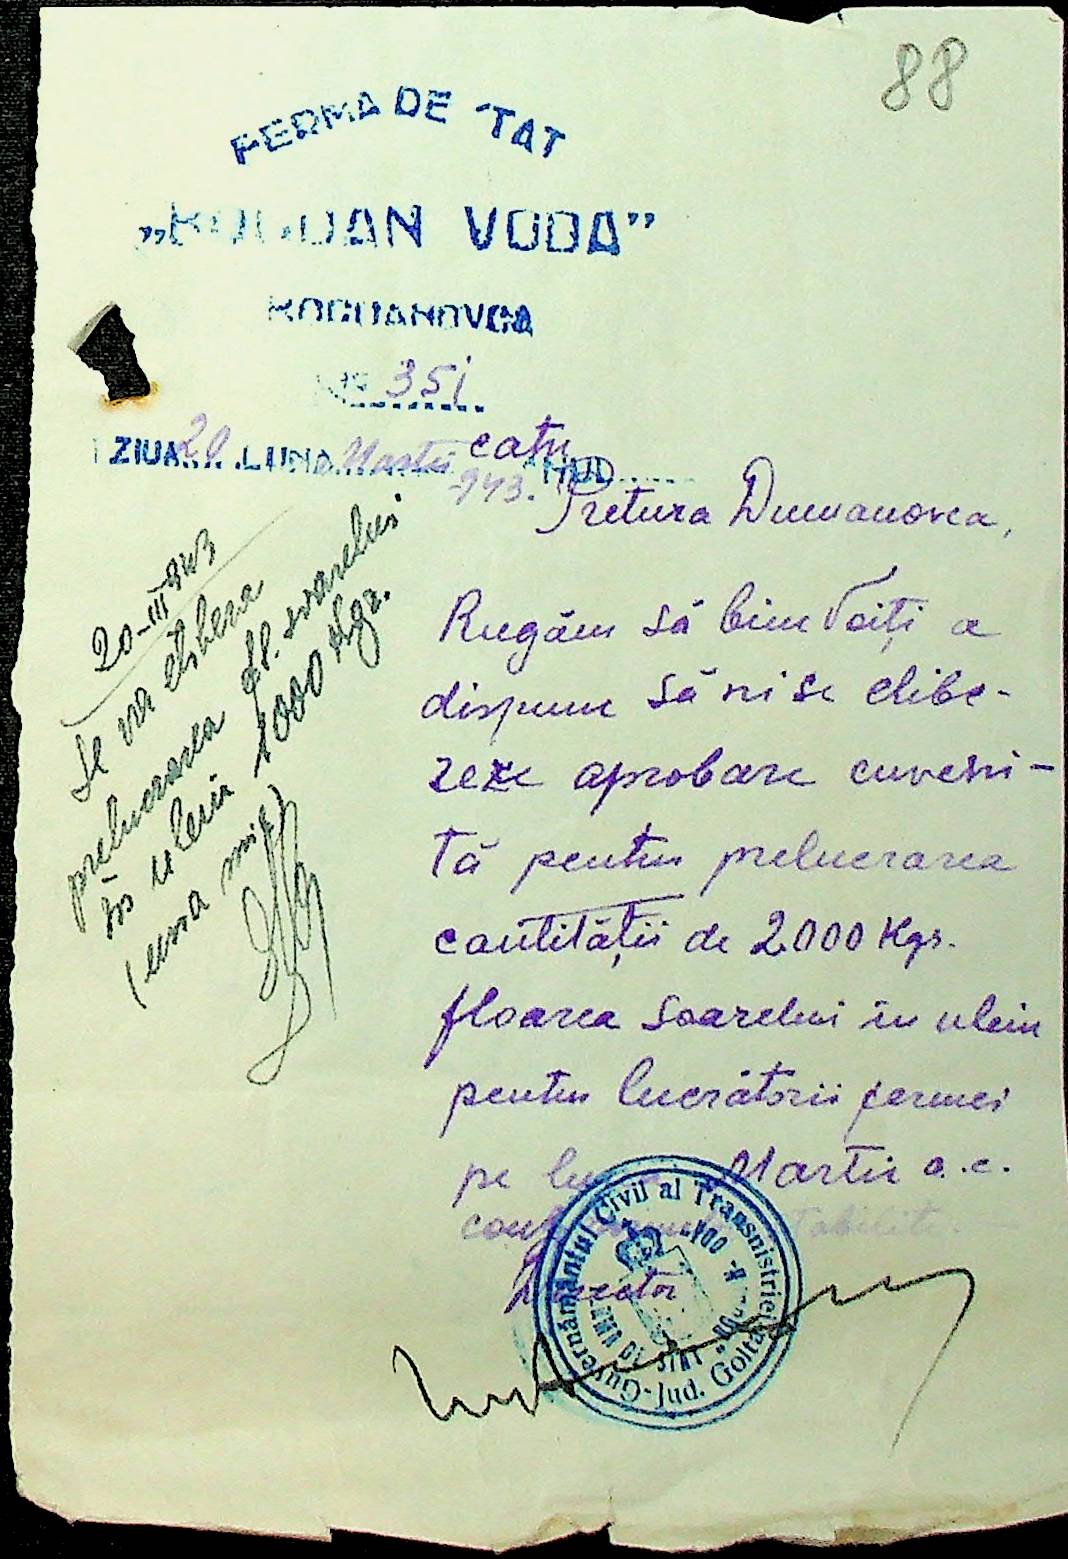 88
FERMA DE STAT
„BOGDAN VODA”
BOGDANOVCA
No 351
ZIUA 20 LUNA Martii ANUL 943.
catre
Pretura Dumanovca,
Rugăm să binevoiți a
dispune să ni se elibe-
reze aprobare cuveni-
tă pentru prelucrarea
cantității de 2000 Kgs.
floarea soarelui în uleiu
pentru lucrătorii fermei
pe luna Martie a.c.
Director
20-III-943
Se va elibera
prelucrarea fl. soarelui
în uleiu 1000 kgr.
(una mie)
Guvernământul Civil al Transnistriei
Jud. Golta